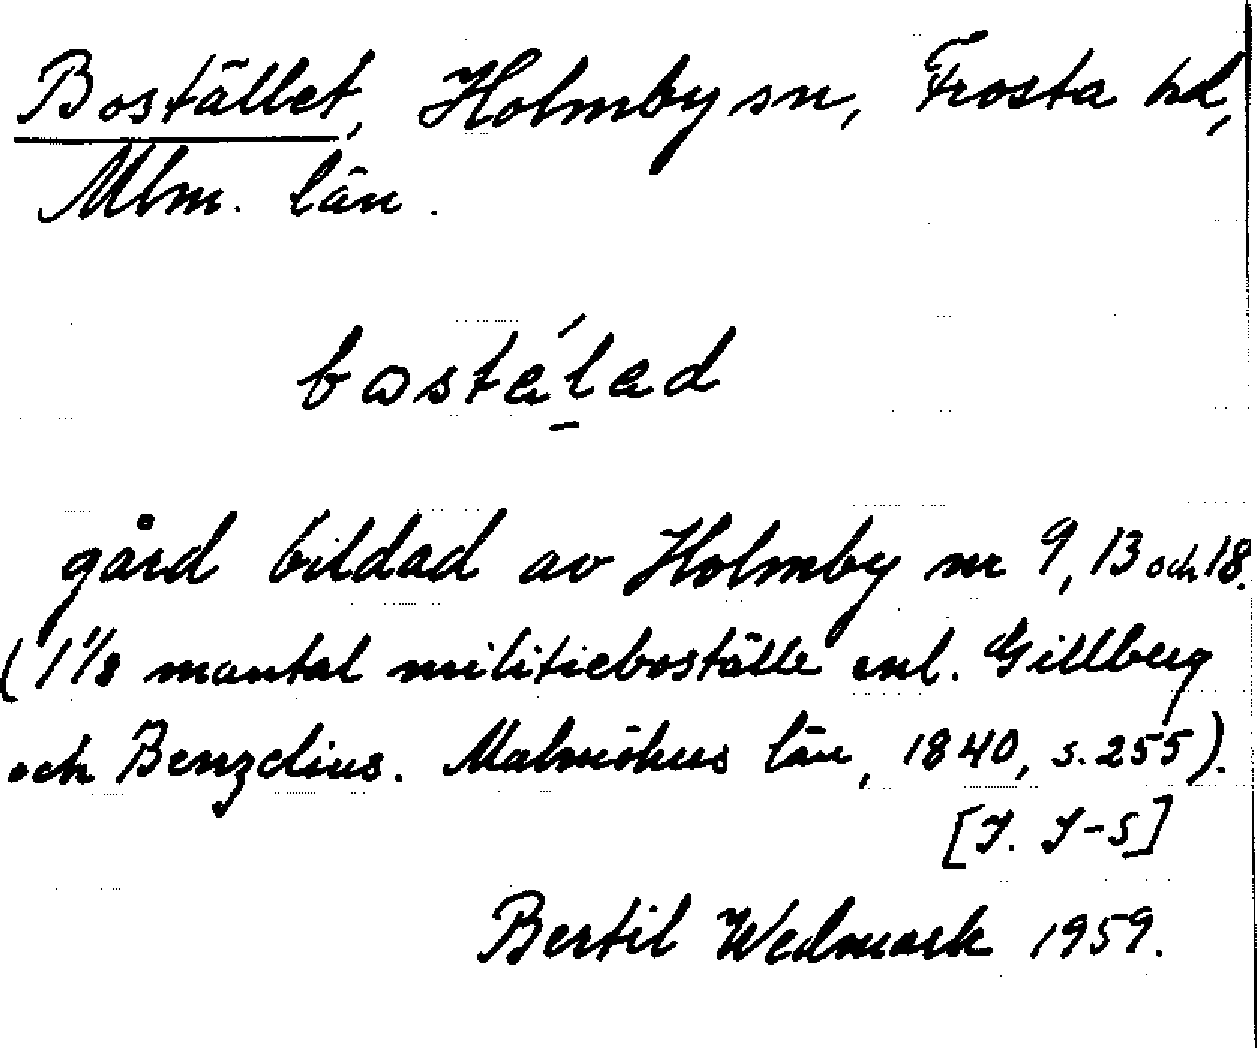 Bostället, Holmby sn, Frosta hd,
Mlm. län.
bostél̠ad
gård bildad av Holmby nr 9, 13 och 18.
(1 1/8 mantal militieboställe enl. Gillberg
och Benzelius. Malmöhus län, 1840, s. 255).
[I. I-S]
Bertil Wedmark 1959.